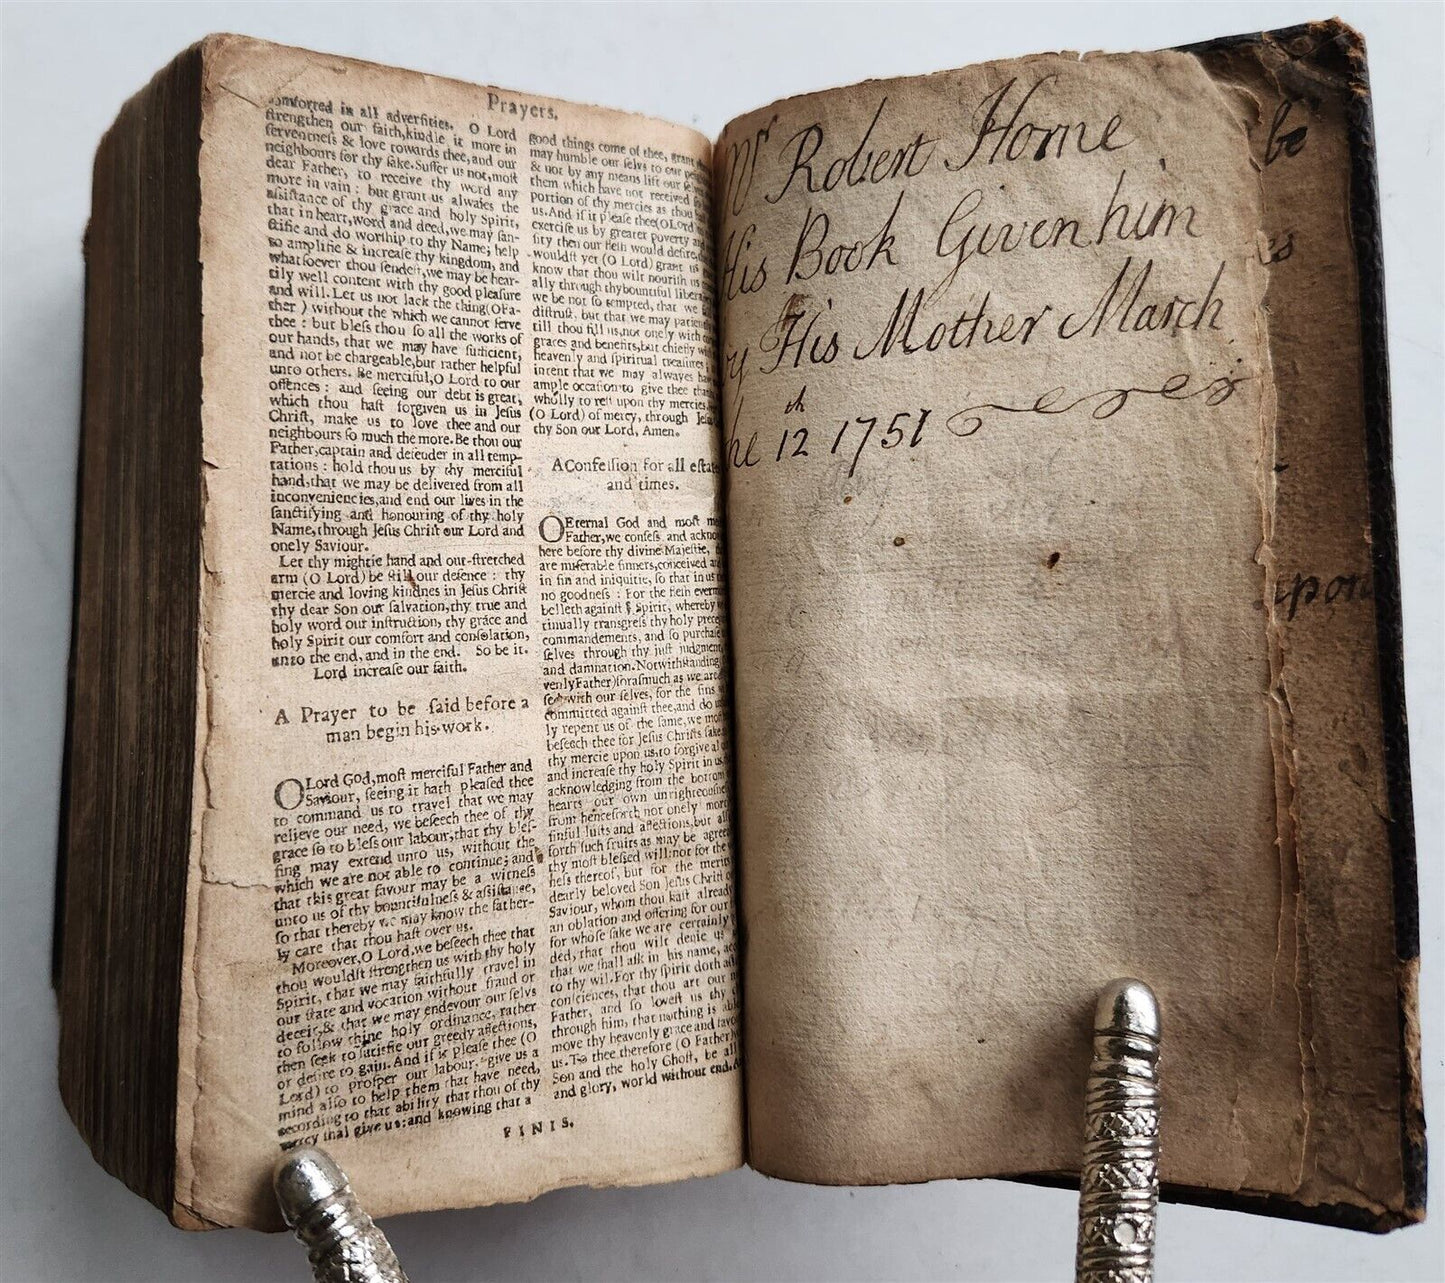 Prayers.
comforted in all adversities. O Lord
strengthen our faith, kindle it more in
ferventness & love towards thee, and our
neighbours for thy sake. Suffer us not, most
dear Father, to receive thy word any
more in vain : but grant us alwaies the
assistance of thy grace and holy Spirit,
that in heart, word and deed, we may san-
ctifie and do worship to thy Name; help
to amplifie & increase thy kingdom, and
whatsoever thou sendest, we may be hear-
tily well content with thy good pleasure
and will. Let us not lack the thing (O Fa-
ther ) without the which we cannot serve
thee : but bless thou so all the works of
our hands, that we may have sufficient,
and not be chargeable, but rather helpful
unto others. Be merciful, O Lord to our
offences : and seeing our debt is great,
which thou hast forgiven us in Jesus
Christ, make us to love thee and our
neighbours so much the more. Be thou our
Father, captain and defender in all temp-
tations : hold thou us by thy merciful
hand, that we may be delivered from all
inconveniencies, and end our lives in the
sanctifying and honouring of thy holy
Name, through Jesus Christ our Lord and
onely Saviour.
Let thy mightie hand and out-stretched
arm (O Lord) be still our defence : thy
mercie and loving kindnes in Jesus Christ
thy dear Son our salvation, thy true and
holy word our instruction, thy grace and
holy Spirit our comfort and consolation,
unto the end, and in the end. So be it.
Lord increase our faith.
A Prayer to be said before a
man begin his work.
O Lord God, most merciful Father and
Saviour, seeing it hath pleased thee
to command us to travel that we may
relieve our need, we beseech thee of thy
grace so to bless our labour, that thy bles-
sing may extend unto us, without the
which we are not able to continue; and
that this great favour may be a witness
unto us of thy bountifulness & assistance,
so that thereby we may know the father-
ly care that thou hast over us.
Moreover, O Lord, we beseech thee that
thou wouldst strengthen us with thy holy
Spirit, that we may faithfully travel in
our state and vocation without fraud or
deceit, & that we may endevour our selvs
to follow thine holy ordinance, rather
then seek to satisfie our greedy affections,
or desire to gain. And if it please thee (O
Lord) to prosper our labour, give us a
mind also to help them that have need,
according to that ability that thou of thy
mercy shal give us: and knowing that a
good things come of thee, grant
may humble our selvs to our
& not by any means lift our
them which have not received
portion of thy mercies as thou
us. And if it please thee (O Lord
exercise us by greater poverty and
sity then our flesh would desire,
wouldst yet (O Lord) grant us
know that thou wilt nourish us
ally through thy bountiful
we be not so tempted, that we
distrust, but that we may
till thou fill us, not onely with
graces and benefits, but chiefly
heavenly and spiritual treasures
intent that we may alwayes
ample occasion to give thee
wholly to rest upon thy mercies.
(O Lord) of mercy, through
thy Son our Lord, Amen.
A Confession for all
and times.
O Eternal God and most
Father, we confess and
here before thy divine Majestie,
are miserable sinners, conceived
in sin and iniquitie, so that in us
no goodness : For the flesh
belleth against ye Spirit, whereby
tinually transgress thy holy
commandements, and so
selves through thy just judgment,
and damnation. Notwithstanding
venly Father) forasmuch as we are
with our selves, for the sins
committed against thee, and do
ly repent us of the same, we
beseech thee for Jesus Christs sake
thy mercie upon us, to forgive
and increase thy holy Spirit in us
acknowledging from the bottom
hearts our own
from henceforth not onely
sinful lusts and affections, but
forth such fruits as may be
thy most blessed will: not for the
ness thereof, but for the
dearly beloved Son Jesus Christ
Saviour, whom thou hast already
an oblation and offering for our
for whose sake we are certainly
ded, that thou wilt denie us
that we shall ask in his name,
to thy wil. For thy spirit doth
consciences, that thou art our
Father, and so lovest us thy
through him, that nothing is
move thy heavenly grace and
us. To thee therefore (O Father
Son and the holy Ghost, be all
and glory, world without end.
FINIS.
Mr Robert Horne
His Book Given him
by His Mother March
the 12th 1751
be
es
upon